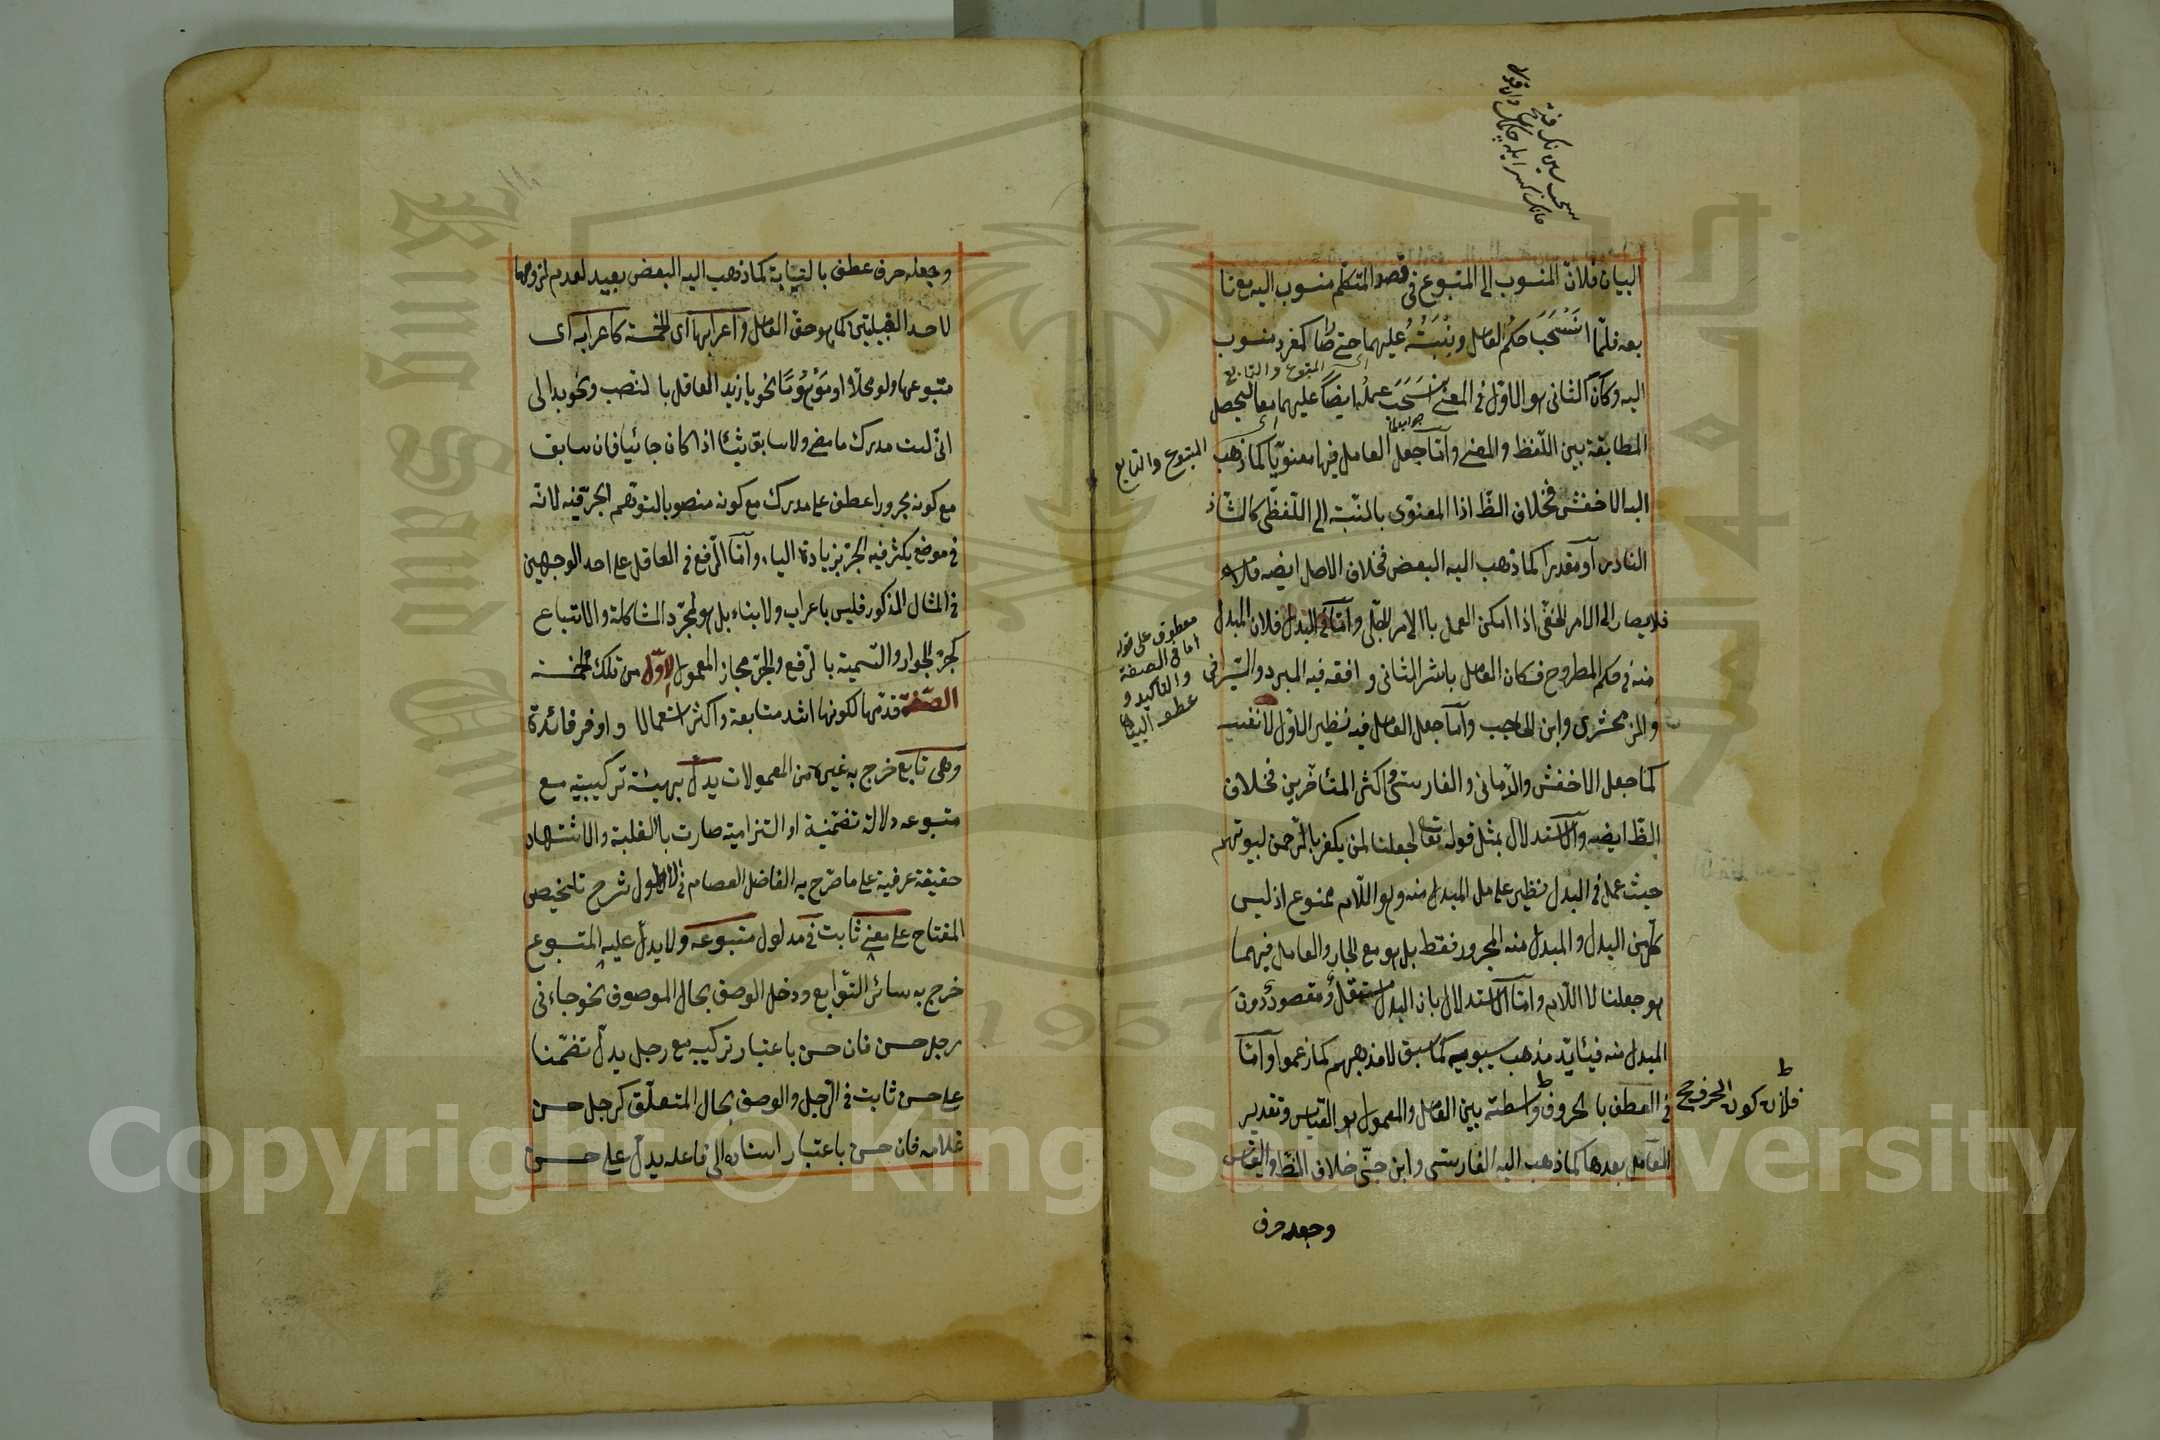 البيان فلانّ المنسوب الى المتبوع فى قصد المتكلّم منسوب اليه مع تا
بعه فلمّا انسحب حكم العامل ونسبته عليهما حتى صارا كمفرد منسوب
المتبوع والتابع
اليه وكأنّ الثانى هو الاوّل فى المعنى انسحب عمله ايضاً عليهما معا ليحصل
جواب لما
المطابقة بين اللّفظ والمعنى وأمّا جعل العامل فيها معنويّا كما ذهب
المتبوع والتابع
اليه الاخفش فخلاف الظّ اذا المعنوى بالنسبة الى اللّفظى كالشّاذ
النادر أو مقدرا كما ذهب اليه البعض فخلاف الاصل ايضه
فلا يصار الى الامر الخفى اذا امكن العمل باالامر الجلى وأمّا فى البدل فلان المبدل
معطوف على قوله
اما فى الصفة
والتاكيد و
عطف البيان
منه فى حكم المطروح فكان العامل باشر الثانى وافقه فيه المبرد والسّيرافى
والزمخشرى وابن الحاجب وأمّا جعل العامل فيه نظير الاوّل لا نفسه
كما جعل الاخفش والرّمانى والفارسى واكثر المتأخرين فخلاف
الظّ ايضه والاستدلال بمثل قوله تعا لجعلنا لمن يكفر بالرّحمن لبيوتهم
حيث عمل فى البدل نظير عامل المبدل منه وهو اللّام ممنوع اذ ليس
كلّ من البدل والمبدل منه المجرور فقط بل هو مع الجار والعامل فيهما
هو جعلنا لا اللّام وامّا الاستدلال بانّ البدل مستقلّ ومقصود دون
المبدل منه فيئايّد مذهب سيبويه كما سبق لا مذهبهم كما زعموا وأمّا
فى العطف بالحروف واسطة بين العامل والمعمول هو القياس وتقدير
فلان كون الحرف صح
العامل بعدها كما ذهب اليه الفارسى وابن جنّى خلاف الظّ والقياس
وجعله حرف
وجعله حرف عطف بالنيابة كما ذهب اليه البعض بعيد لعدم لزومها
لاحد القبيلتين كما هو حق العامل واعرابها اى الخمسة كاعرابه اى
متبوعها ولو محلّا او موهوما نحو يا زيد العاقل بالنصب ونحو بدا لى
انّى لست مدرك ما مضى ولا سابق شيئا اذا كان جائيا فان سابق
مع كونه مجرورا عطف على مدرك مع كونه منصوبا لتوهم الجرّ فيه لانه
فى موضع يكثر فيه الجرّ بزيادة الباء وأمّا الرّفع فى العاقل على احد الوجهين
فى المثال المذكور فليس باعراب ولا بناء بل هو لمجرّد المشاكلة والاتباع
كجرّ الجوار والتسمية بالرّفع والجرّ مجاز المعمول الاوّل من تلك الخمسة
الصّفة قدّمها لكونها اشد متابعة واكثر استعمالا واوفر فائدة
وهى تابع خرج به غيره من المعمولات يدلّ بهيئة تركيبية مع
متبوعه دلالة تضمّنية او التزامية صارت باالغلبة والاشتهار
حقيقة عرفية على ما صرّح به الفاضل العصام فى الاطول شرح تلخيص
المفتاح على معنى ثابت فى مدلول متبوعه ولا يدلّ عليه المتبوع
خرج به سائر التّوابع ودخل الوصف بحال الموصوف نحو جاءنى
رجل حسن فان حسن باعتبار تركيبه مع رجل يدلّ تضمّنا
على حسن ثابت فى الرّجل والوصف بحال المتعلّق كرجل حسن
غلامه فان حسن باعتبار اسناده الى فاعله يدلّ على حسن
King Saud University
1957
Copyright © King Saud University